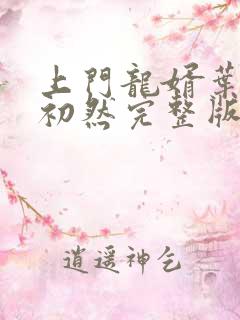 上門龍婿葉
初然完整版
逍遥神乞